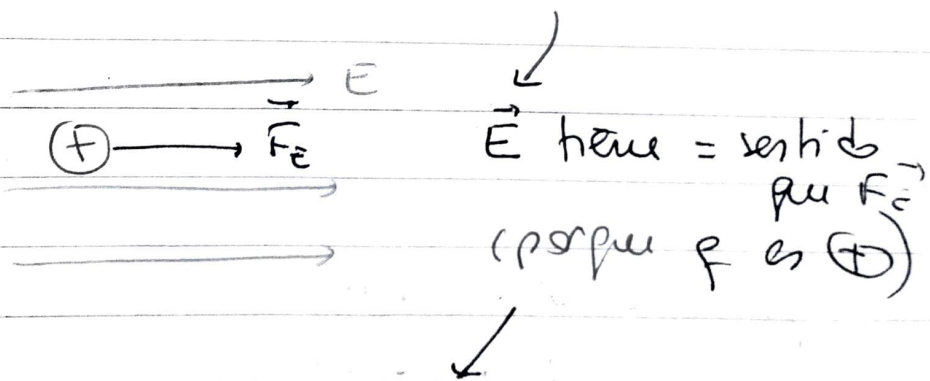 E
+ F⃗_E E⃗ tiene = sentido
que F⃗_E
(porque q es ⊕)